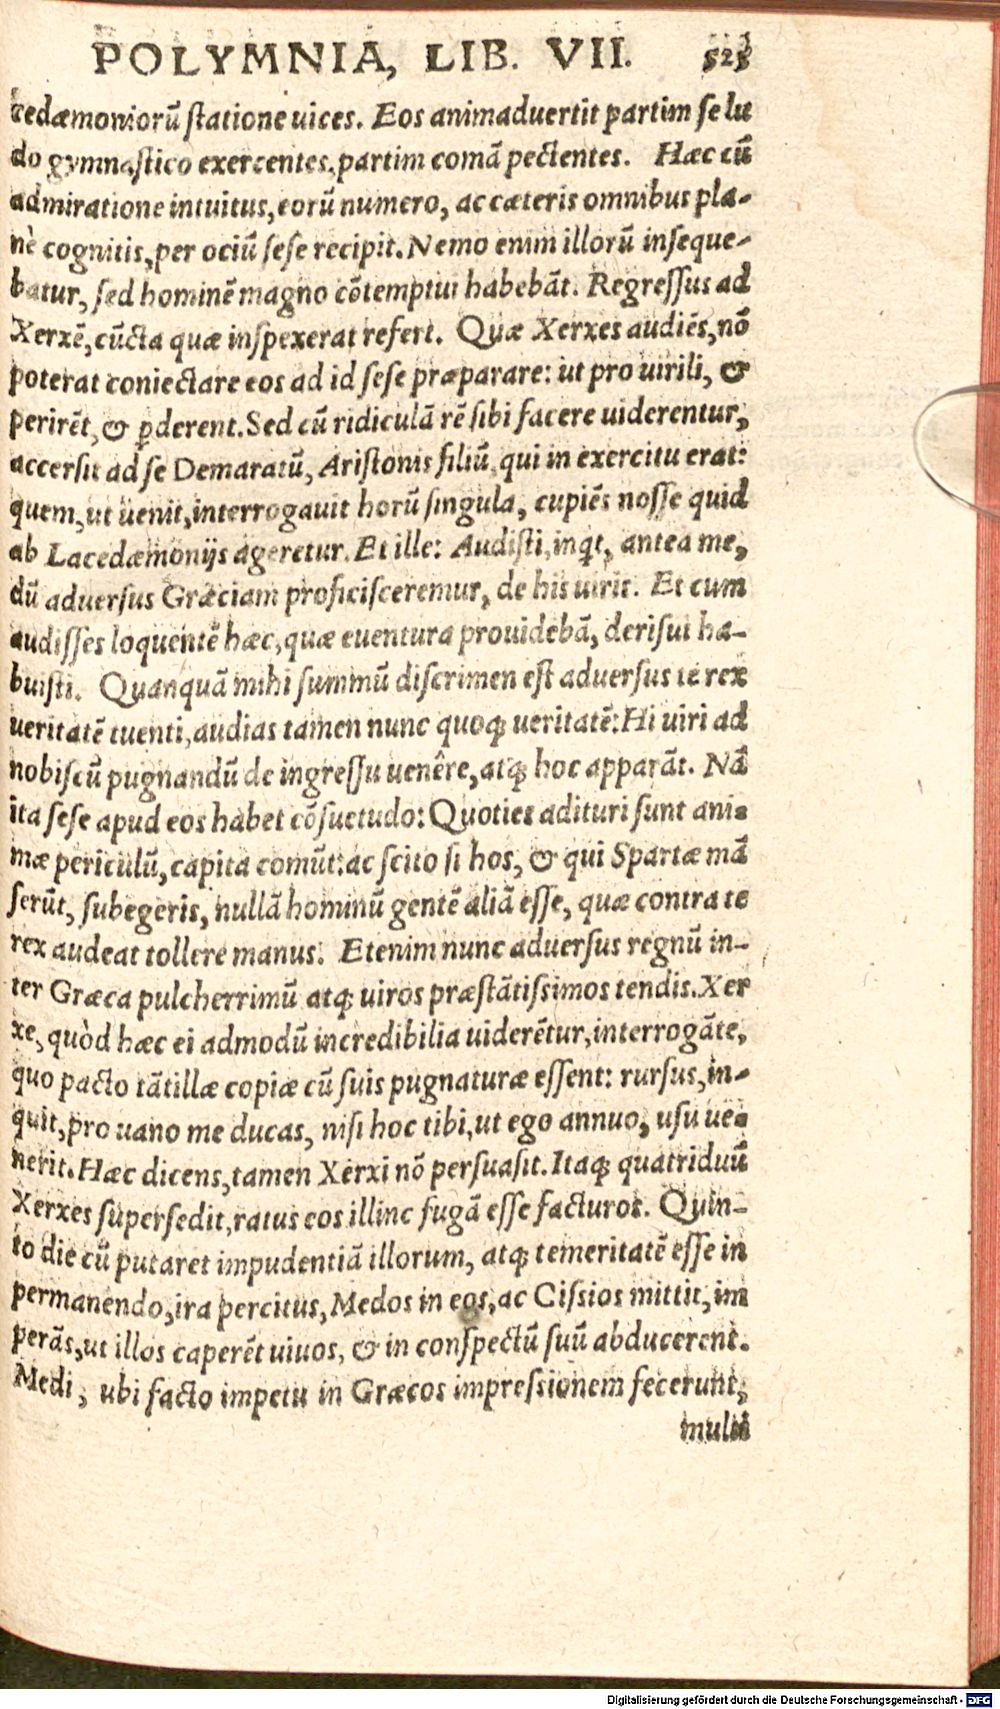 POLYMNIA, LIB. VII. 525
cedæmoniorũ statione uices. Eos animaduertit partim se lu
do gymnastico exercentes, partim comã pectentes. Hæc cũ
admiratione intuitus, eorũ numero, ac cæteris omnibus pla-
nè cognitis, per ociũ sese recipit. Nemo enim illorũ inseque-
batur, sed hominẽ magno cõtemptui habebãt. Regressus ad
Xerxẽ, cũcta quæ inspexerat refert. Quæ Xerxes audiẽs, nõ
poterat coniectare eos ad id sese præparare: ut pro uirili, &
perirẽt, & ꝑderent. Sed cũ ridiculã rẽ sibi facere uiderentur,
accersit ad se Demaratũ, Aristonis filiũ, qui in exercitu erat:
quem, ut uenit, interrogauit horũ singula, cupiẽs nosse quid
ab Lacedæmonijs ageretur. Et ille: Audisti, inqt, antea me,
dũ aduersus Græciam proficisceremur, de his uiris. Et cum
audisses loquentẽ hæc, quæ euentura prouidebã, derisui ha-
buisti. Quanquã mihi summũ discrimen est aduersus te rex
ueritatẽ tuenti, audias tamen nunc quoqꝫ ueritatẽ: Hi uiri ad
nobiscũ pugnandũ de ingressu uenêre, atqꝫ hoc apparãt. Nã
ita sese apud eos habet cõsuetudo: Quoties adituri sunt ani-
mæ periculũ, capita comũt: ac scito si hos, & qui Spartæ mã
serũt, subegeris, nullã hominũ gentẽ aliã esse, quæ contra te
rex audeat tollere manus. Etenim nunc aduersus regnũ in-
ter Græca pulcherrimũ atqꝫ uiros præstãtissimos tendis. Xer
xe, quòd hæc ei admodũ incredibilia uiderẽtur, interrogãte,
quo pacto tãtillæ copiæ cũ suis pugnaturæ essent: rursus, in-
quit, pro uano me ducas, nisi hoc tibi, ut ego annuo, usu ue-
nerit. Hæc dicens, tamen Xerxi nõ persuasit. Itaqꝫ quatriduũ
Xerxes supersedit, ratus eos illinc fugã esse facturos. Quin-
to die cũ putaret impudentiã illorum, atqꝫ temeritatẽ esse in
permanendo, ira percitus, Medos in eos, ac Cissios mittit, im
perãs, ut illos caperẽt uiuos, & in conspectũ suũ abducerent.
Medi, ubi facto impetu in Græcos impressionem fecerunt,
multi
Digitalisierung gefördert durch die Deutsche Forschungsgemeinschaft - DFG